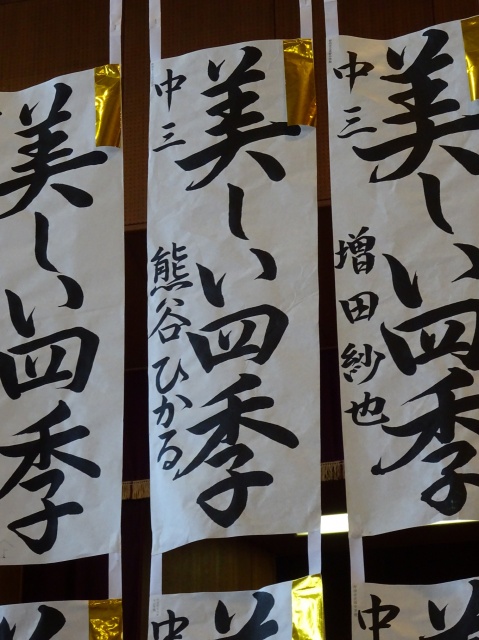 美しい四季
中三
増田紗也
美しい四季
中三
熊谷ひかる
美しい四季
中
美
中
美